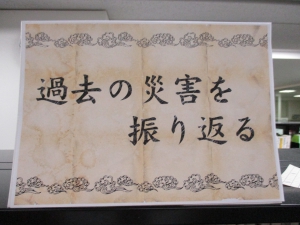 過去の災害を
振り返る